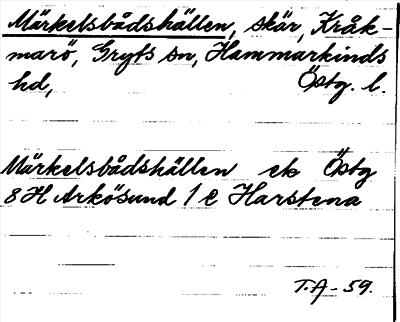 Märkelsbådshällen, skär, Kråk-
marö, Gryts sn, Hammarkinds
hd, Östg. l.
Märkelsbådshällen ek Östg
8H Arkösund 1 e Harstena
T.A - 59.